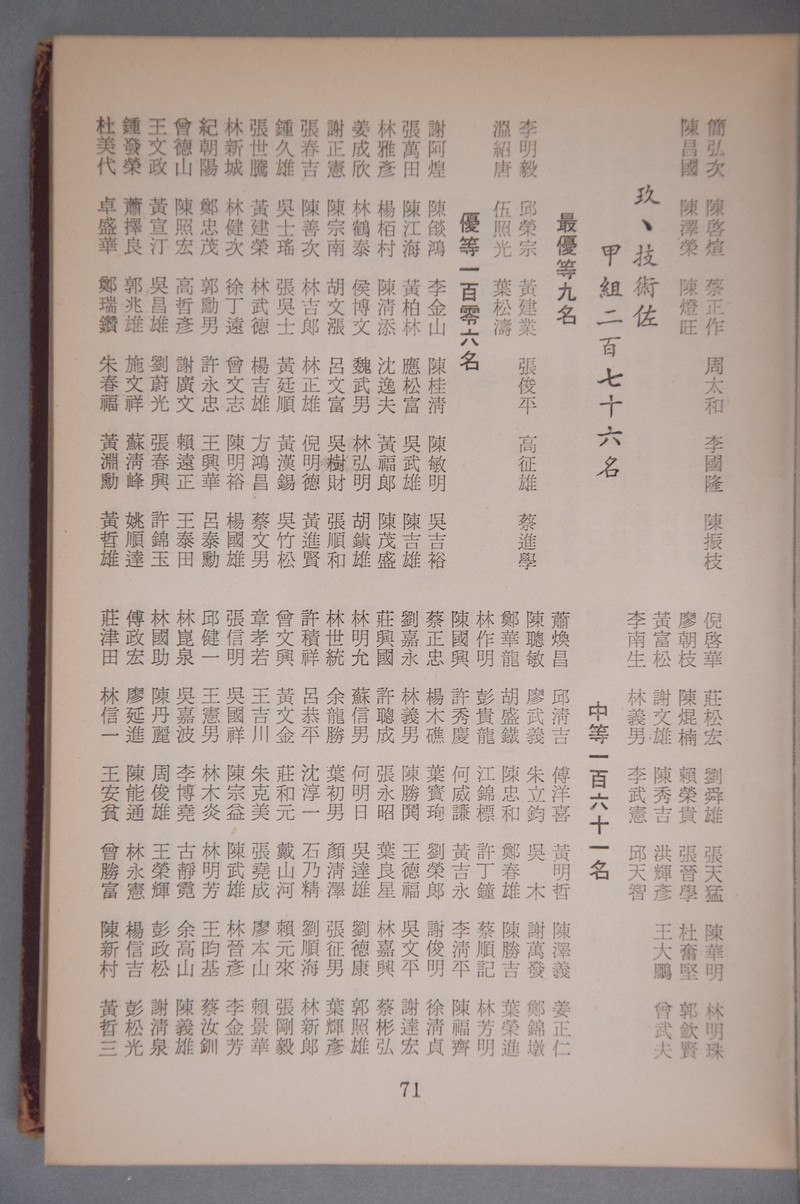 簡弘次 陳啓煊 蔡正作 周太和 李國隆 陳振枝
陳昌國 陳澤榮 陳燈旺
玖、技術佐
甲組二百七十六名
最優等九名
李明毅 邱榮宗 黃建業 張俊平 高征雄 蔡進學
溫紹唐 伍照光 葉松濤
優等一百零六名
謝阿煌 陳燄鴻 李金山 陳桂淸 陳敏明 吳吉裕
張萬田 陳江海 黃柏林 應松富 吳武雄 陳吉雄
林雅彥 楊栢村 陳淸添 沈逸夫 黃福郞 陳茂盛
姜成欣 林鶴泰 侯博文 魏武男 林弘明 胡鎭雄
謝正憲 陳宗南 胡文漲 呂文富 吳樹財 張順和
張春吉 陳善次 林吉郞 林正雄 倪明德 黃進賢
鍾久雄 吳士瑤 張吳士 黃廷順 黃漢錫 吳竹松
張世騰 黃建榮 林武德 楊吉雄 方鴻昌 蔡文男
林新城 林健次 徐丁遠 曾文志 陳明裕 楊國雄
紀朝陽 鄭忠茂 郭勳男 許永忠 王興華 呂泰勳
曾德山 陳照宏 高哲彥 謝廣文 賴遠正 王泰田
王文政 黃宣汀 吳昌雄 劉蔚光 張春興 許錦玉
鍾發榮 蕭擇良 郭兆雄 施文祥 蘇淸峰 姚順達
杜美代 卓盛華 鄭瑞鑽 朱春福 黃淵勳 黃哲雄
倪啓華 莊松宏 劉舜雄 張天猛 陳華明 林明珠
廖朝枝 陳焜楠 賴榮貴 張晉學 杜奮堅 郭欽賢
黃富松 謝文雄 陳秀吉 洪輝彥 王大鵬 曾武夫
李南生 林義男 李武憲 邱天智
中等一百六十一名
蕭煥昌 邱淸吉 傅洋喜 黃明哲 陳澤義 姜正仁
陳聰敏 廖武義 朱立鈞 吳木 謝萬發 鄭錦墩
鄭華龍 胡盛鐵 陳忠和 鄭春雄 陳勝吉 葉榮進
林作明 彭貴龍 江錦標 許丁鐘 蔡順記 林芳明
陳國興 許秀慶 何威謙 黃吉永 李淸平 陳福齊
蔡正忠 楊木礁 葉寳珣 劉榮郞 謝俊明 徐淸貞
劉嘉永 林義男 陳勝関 王德福 吳文平 謝達宏
莊興國 許聰成 張永昭 葉良星 林嘉興 蔡彬弘
林明允 蘇信男 何明日 吳達雄 劉德康 郭照雄
林世統 余龍勝 葉初男 顏淸澤 張征男 葉輝彥
許積祥 呂恭平 沈淳一 石乃精 劉順海 林新郞
曾文興 黃文金 莊和元 戴山河 賴元來 張剛毅
章孝若 王吉川 朱克美 張堯成 廖本山 賴景華
張信明 吳國祥 陳宗益 陳武雄 林晉彥 李金芳
邱健一 王憲男 林木炎 林明芳 王昀基 蔡汝釧
林崑泉 吳嘉波 李博堯 古靜霓 余高山 陳義雄
林國助 陳丹麗 周俊雄 王榮輝 彭政松 謝淸泉
傅政宏 廖延進 陳能通 林永憲 楊信吉 彭松光
莊津田 林信一 王安貧 曾勝富 陳新村 黃哲三
71